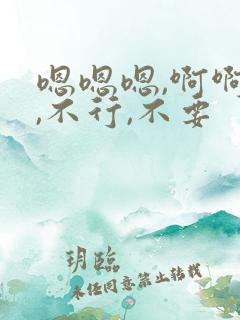 嗯嗯嗯,啊啊
,不行,不要
玥臨
未经同意禁止转载